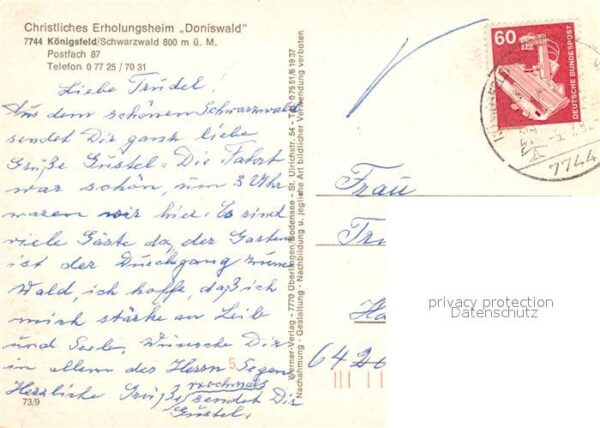 Christliches Erholungsheim „Doniswald"
7744 Königsfeld/Schwarzwald 800 m ü. M.
Postfach 87
Telefon 0 77 25 / 70 31
Liebe Trudel!
Aus dem schönen Schwarzwald
sendet Dir ganz liebe
Grüße Gustel. Die Fahrt
war schön, um 3 Uhr
waren wir hier. Es sind
viele Gäste da, der Garten
ist der Durchgang zum
Wald, ich hoffe, daß ich
mich stärke an Leib
und Seele. Wünsche Dir
in allem des Herrn Segen
Herzliche Grüße sendet Dir
nochmals
Gustel.
73/9
Werner-Verlag - 7770 Überlingen/Bodensee - St. Ulrichstr. 54 - T. 0 75 51/6 19 37
Nachahmung - Gestaltung - Nachbildung u. jegliche Art bildlicher Verwendung verboten
60
DEUTSCHE BUNDESPOST
7744
Frau
privacy protection
Datenschutz
5